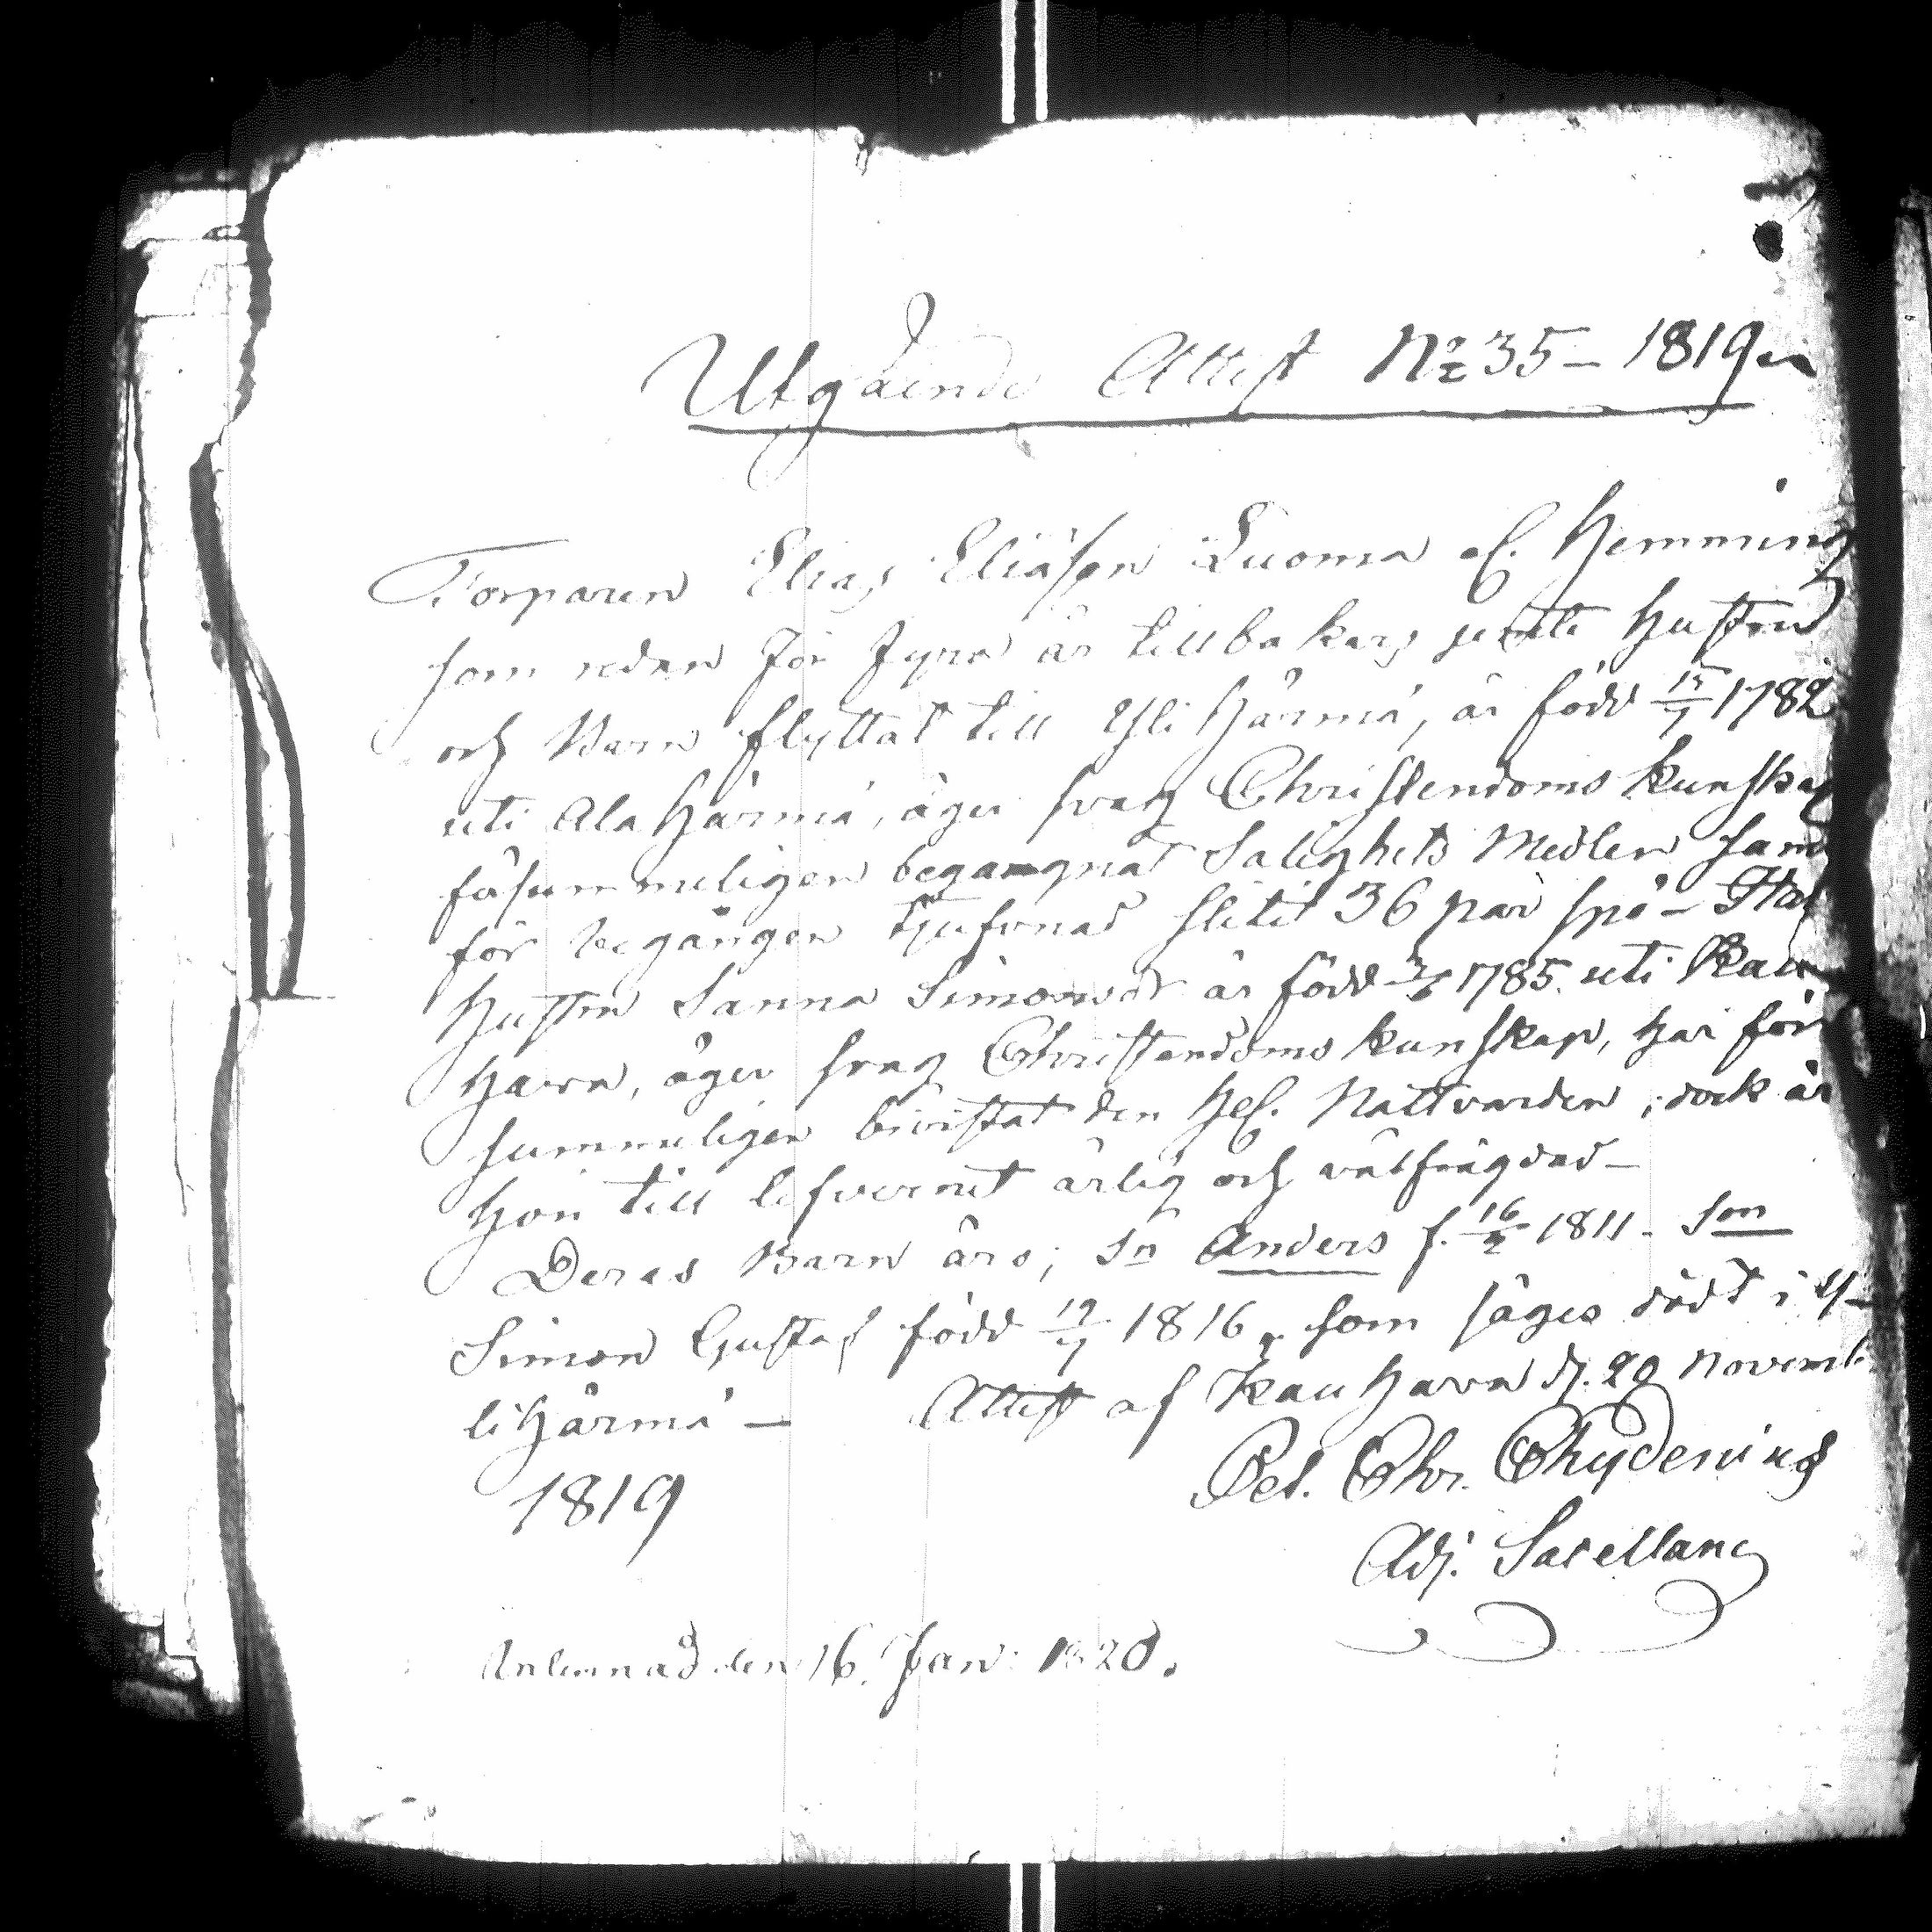 Utgående Attest No 35 – 1819
Torparen Elias Eliasson Luoma el. Hemming
som redan för fyra år tillbakars jemte Hustru
och Barn flyttat till Yli Härmä, är född 15/7 1782
uti Ala Härmä, äger svag Christendoms kunskap
försummeligen begangnat Salighets Medlen samt
för begången tjufvnad slitit 36 par spö –
Hustrun Sanna Simonsdr är född 3/6 1785. uti Kau
hava, äger svag Christendoms kunskap, har för
summeligen bivistat den Hel. Nattvarden, dock är
hon till lefvernet ärlig och välfrägdad –
Deras Barn äro; Sn Anders f. 16/2 1811 – Son
Simon Gustaf född 19/7 1816, som säges dödt i Y-
li Härmä – Attest af Kauhava d. 29 Novemb.
1819 Pet. Chr. Chydenius
Adj. Sacellang
Inlemnad den 16. Jan: 1820.